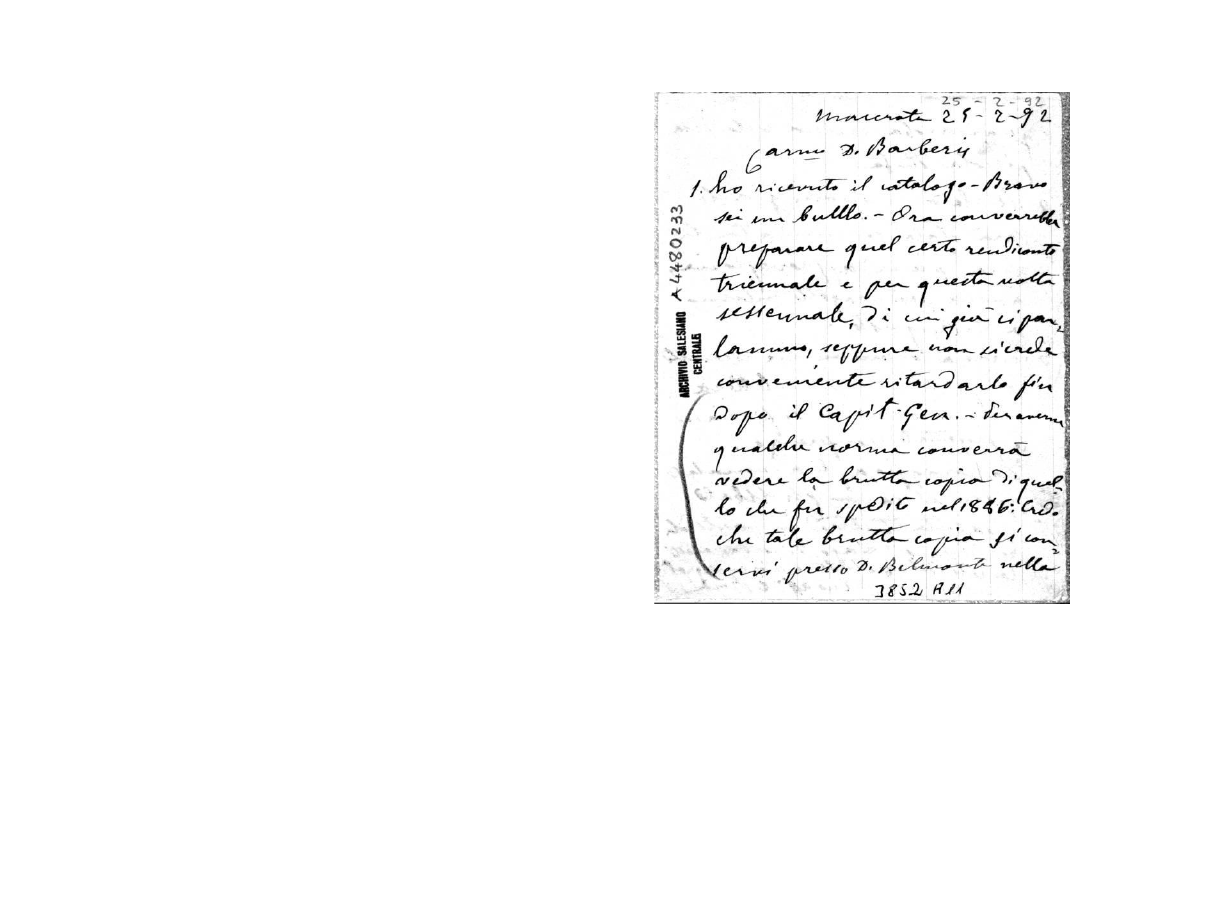 25 - 2 - 92
Macerata 25-2-92
Carmo D. Barberis
1. ho ricevuto il catalogo - Bravo
sei un bulllo. - Ora converrebbe
preparare quel certo rendiconto
triennale e per questa volta
sessennale, di cui già ci par-
lammo, seppure non si creda
conveniente ritardarlo fin
dopo il Capit. Gen. - Per averne
qualche norma converrà
vedere la brutta copia di quel-
lo che fu spedito nel 1886: Credo
che tale brutta copia si con-
servi presso D. Belmonte nella
3852 A11
A4480233
ARCHIVIO SALESIANO
CENTRALE